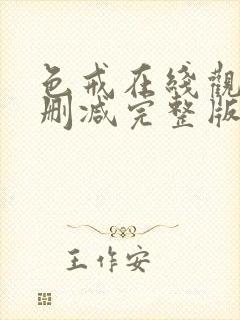 色戒在线觀
删减完整版
王作安